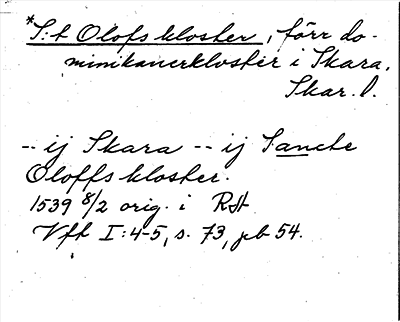 *S:t Olofs kloster, förr do-
minikanerkloster i Skara,
Skar. l.
-- ij Skara -- ij Sancte
Oloffs kloster.
1539 8/2 orig. i RA.
Vfh I:4-5, s. 73, pb 54.